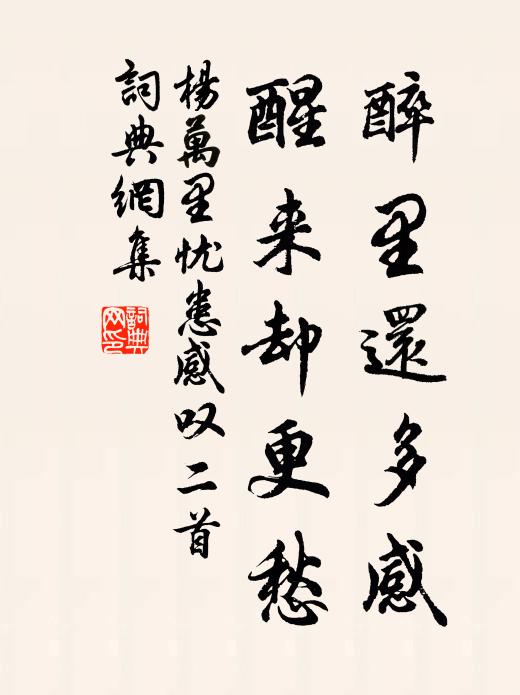 醉里還多感
醒来却更愁
楊萬里忧患感叹二首
詞典網集
詞典网印